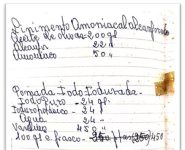 Linimento Amoniacal Alcanforado
Aceite de olivas 200 gr
Alcanfor 22 "
Amoniaco 50 "
Pomada Iodo Iodurada.
Iodo Puro - 24 gr.
- 24 "
Agua - 24 "
Vaselina 450 "
100 gr. frasco 450